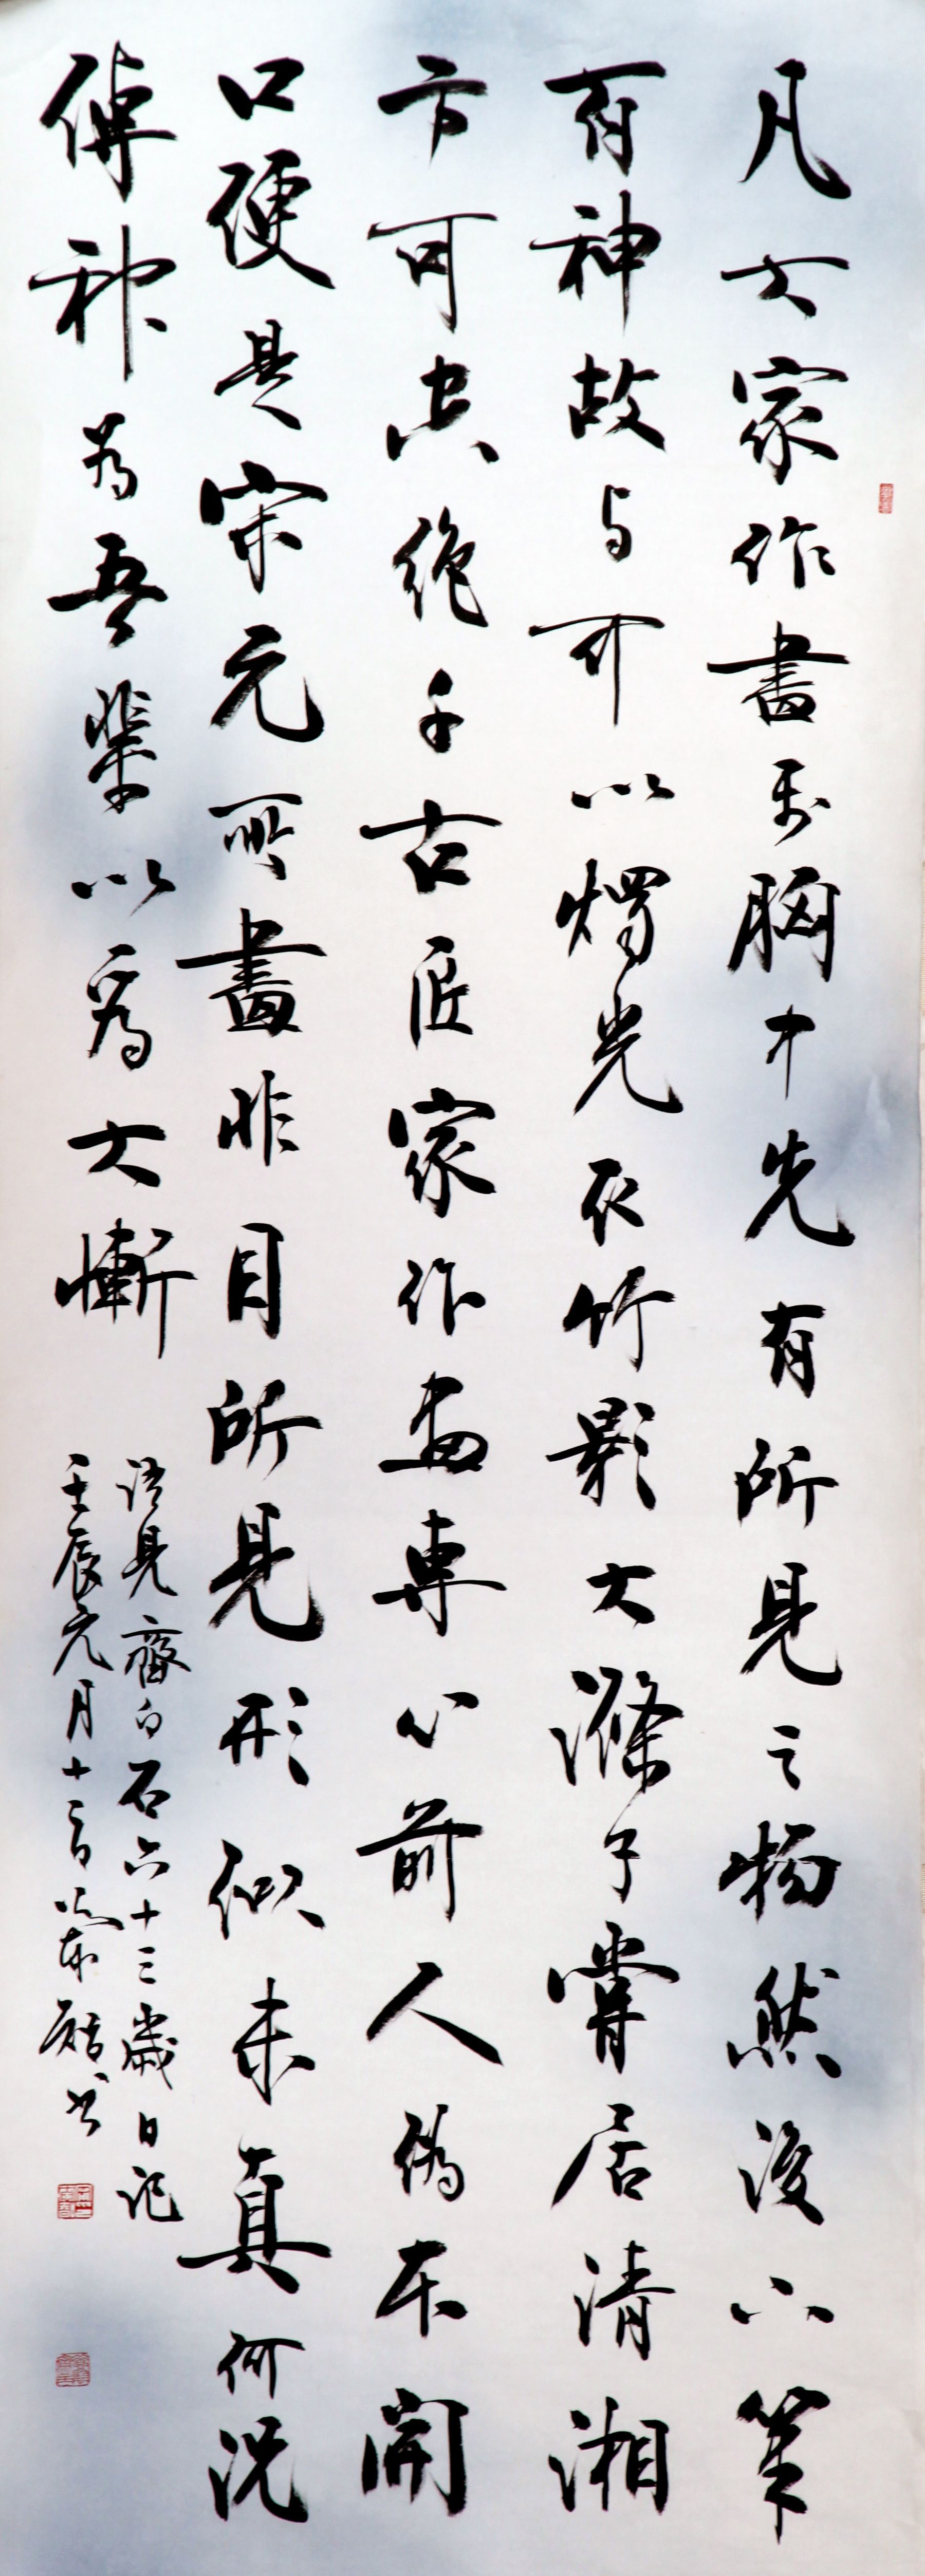 凡大家作畫要胸中先有所見之物然後下筆
有神故与可以燭光取竹影大滌子嘗居清湘
方可空絕千古匠家作画專心前人偽本開
口便是宋元所畫非目所見形似未真何況
傳神為吾輩以為大慚
語見齊白石六十三歲日記
壬辰元月十三日